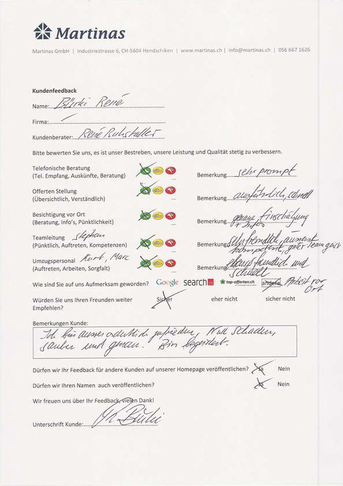 Martinas
Martinas GmbH | Industriestrasse 6, CH-5604 Hendschiken | www.martinas.ch | info@martinas.ch | 056 667 1626
Kundenfeedback
Name: Bürki René
Firma:
Kundenberater: René Ruhstaller
Bitte bewerten Sie uns, es ist unser Bestreben, unsere Leistung und Qualität stetig zu verbessern.
Telefonische Beratung
(Tel. Empfang, Auskünfte, Beratung) Bemerkung sehr prompt
Offerten Stellung
(Übersichtlich, Verständlich) Bemerkung ausführlich, schnell
Besichtigung vor Ort
(Beratung, Info's, Pünktlichkeit) Bemerkung genaue Einschätzung
Teamleitung Stephan
(Pünktlich, Auftreten, Kompetenzen) Bemerkung sehr freundlich,
kompetent, guter Teamgeist
Umzugspersonal Kurt, Marc
(Auftreten, Arbeiten, Sorgfalt) Bemerkung freundlich und
schnell
Wie sind Sie auf uns Aufmerksam geworden? Google search top-offerten.ch Arbeit vor
Ort
Würden Sie uns Ihren Freunden weiter Sicher eher nicht sicher nicht
Empfehlen?
Bemerkungen Kunde:
Ich bin ausserordentlich zufrieden, Null Schaden,
sauber und genau. Bin begeistert.
Dürfen wir Ihr Feedback für andere Kunden auf unserer Homepage veröffentlichen? Ja Nein
Dürfen wir Ihren Namen auch veröffentlichen? Ja Nein
Wir freuen uns über Ihr Feedback, vielen Dank!
Unterschrift Kunde: